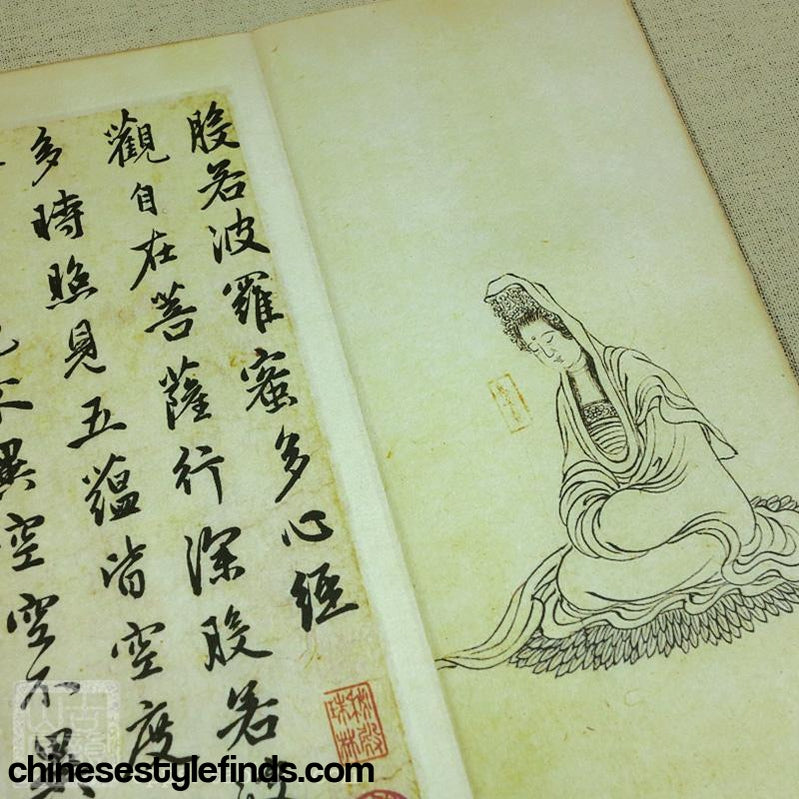 般若波羅蜜多心經
觀自在菩薩行深般若波
多時照見五蘊皆空度
不異空空不異
chinesestylefinds.com